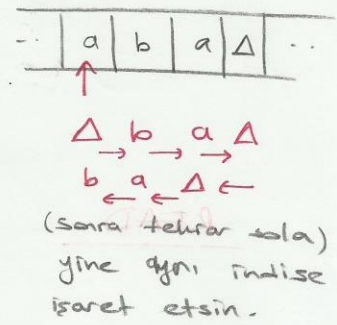 .. a b a Δ ..
Δ b a Δ
b a Δ
(sonra tekrar sola)
yine aynı indise
işaret etsin.